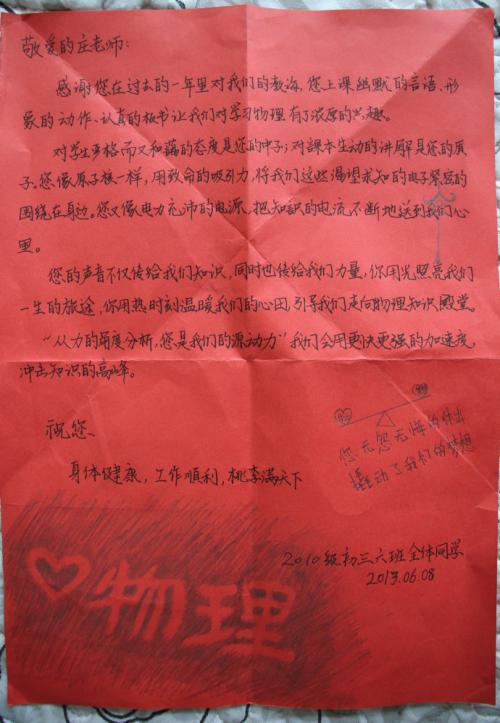 敬爱的庄老师:
感谢您在过去的一年里对我们的教诲,您上课幽默的言语、形
象的动作、认真的板书让我们对学习物理有了浓厚的兴趣。
对学生严格而又和蔼的态度是您的中子;对课本生动的讲解是您的质
子。您像原子核一样,用致命的吸引力,将我们这些渴望求知的电子紧密的
围绕在身边。您又像电力充沛的电源,把知识的电流不断地送到我们心
里。
您的声音不仅传给我们知识,同时也传给我们力量,你用光照亮我们
一生的旅途,你用热时刻温暖我们的心田,引导我们走向物理知识殿堂。
“从力的角度分析,您是我们的源动力”我们会用更快更强的加速度,
冲击知识的高峰。
祝您、
身体健康,工作顺利,桃李满天下
您无怨无悔的付出
撬动了我们的梦想
2010级初三六班全体同学
2013.06.08
物理